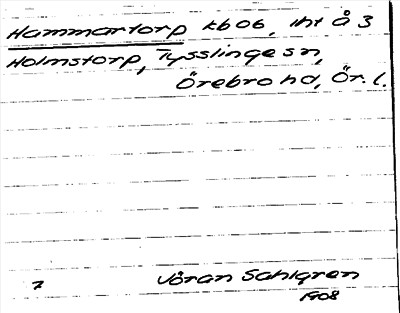 Hammartorp kb06, iht å 3
Holmstorp, Tysslinge sn,
Örebro hd, Ör. l.
7 Jöran Sahlgren
1908